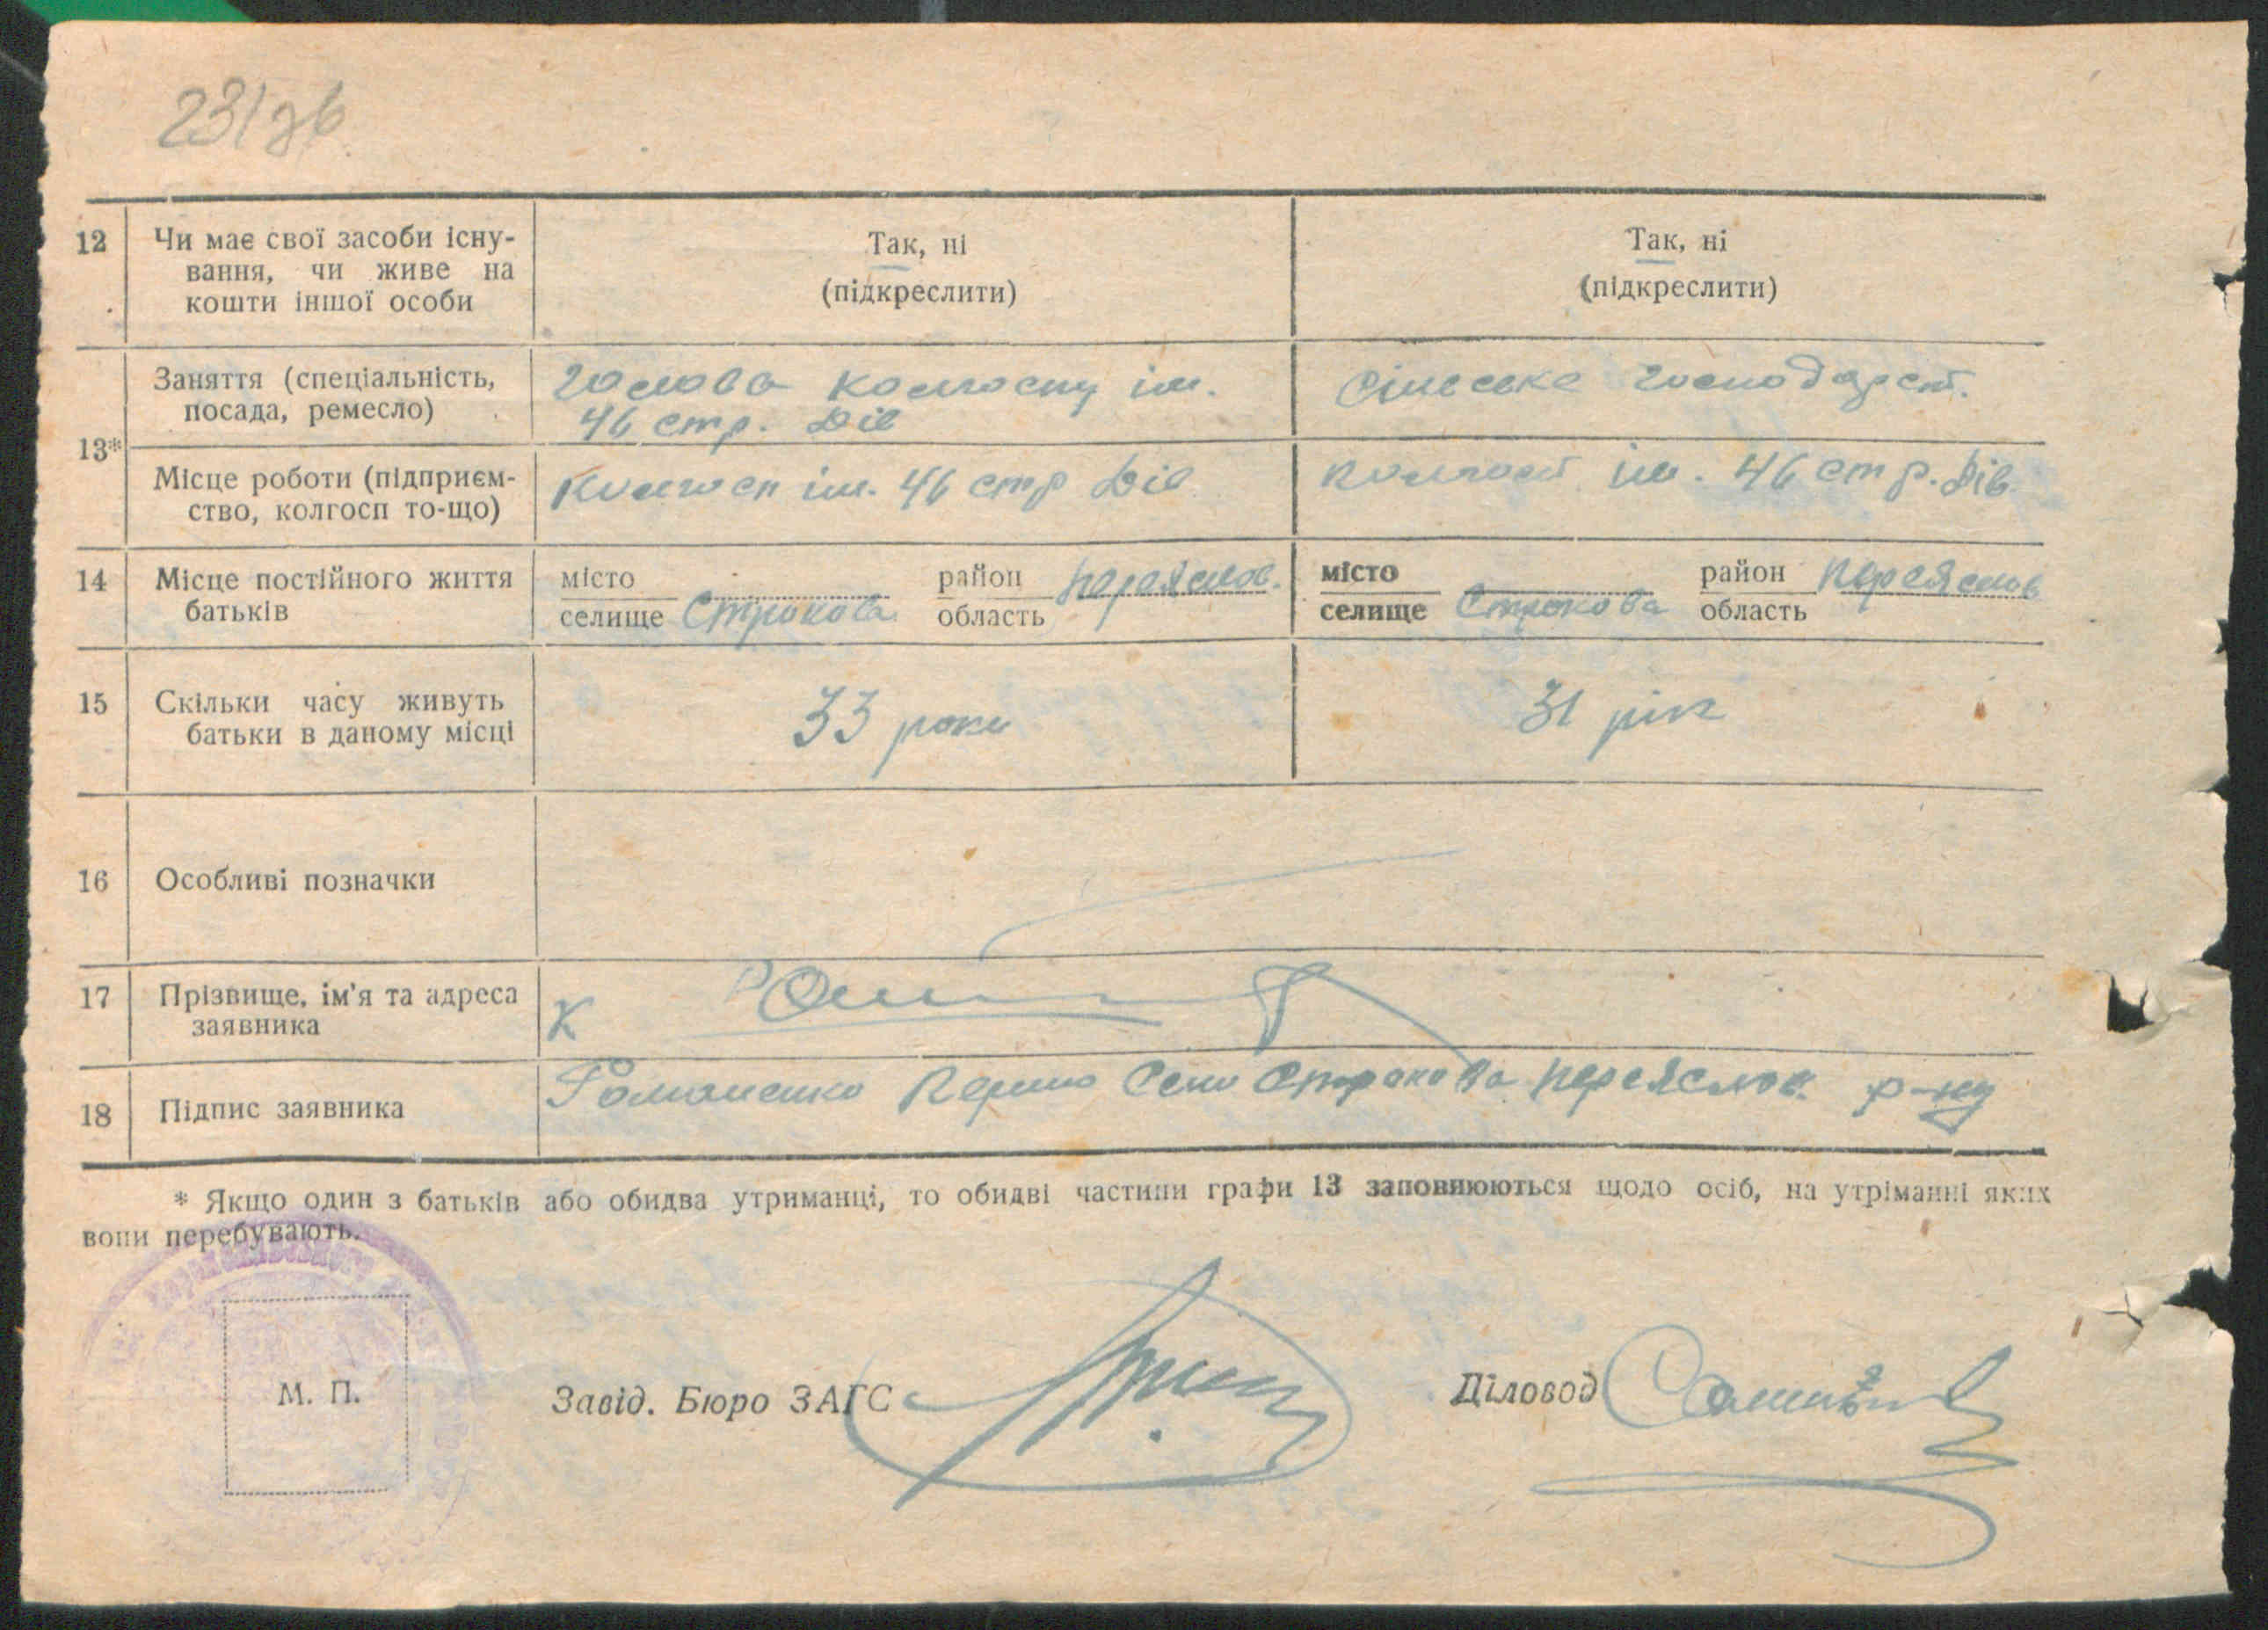 12 Чи має свої засоби існу-
вання, чи живе на
кошти іншої особи
Так, ні
(підкреслити)
Так, ні
(підкреслити)
13*
Заняття (спеціальність,
посада, ремесло)
Голова колгоспу ім.
46 стр. Див
Сільське господарст.
Місце роботи (підприєм-
ство, колгосп то-що)
Колгосп ім. 46 стр Див
Колгосп ім. 46 стр. Див.
14 Місце постійного життя
батьків
місто
селище Строкова
район
область Переяслов.
місто
селище Строкова
район
область Переяслов
15 Скільки часу живуть
батьки в даному місці
33 роки
31 рік
16 Особливі позначки
17 Прізвище, ім'я та адреса
заявника
К
18 Підпис заявника
Романенко Село Строкова Переяслов. р-ну
* Якщо один з батьків або обидва утриманці, то обидві частини графи 13 заповнюються щодо осіб, на утріманні яких
вони перебувають.
М. П.
Завід. Бюро ЗАГС
Діловод